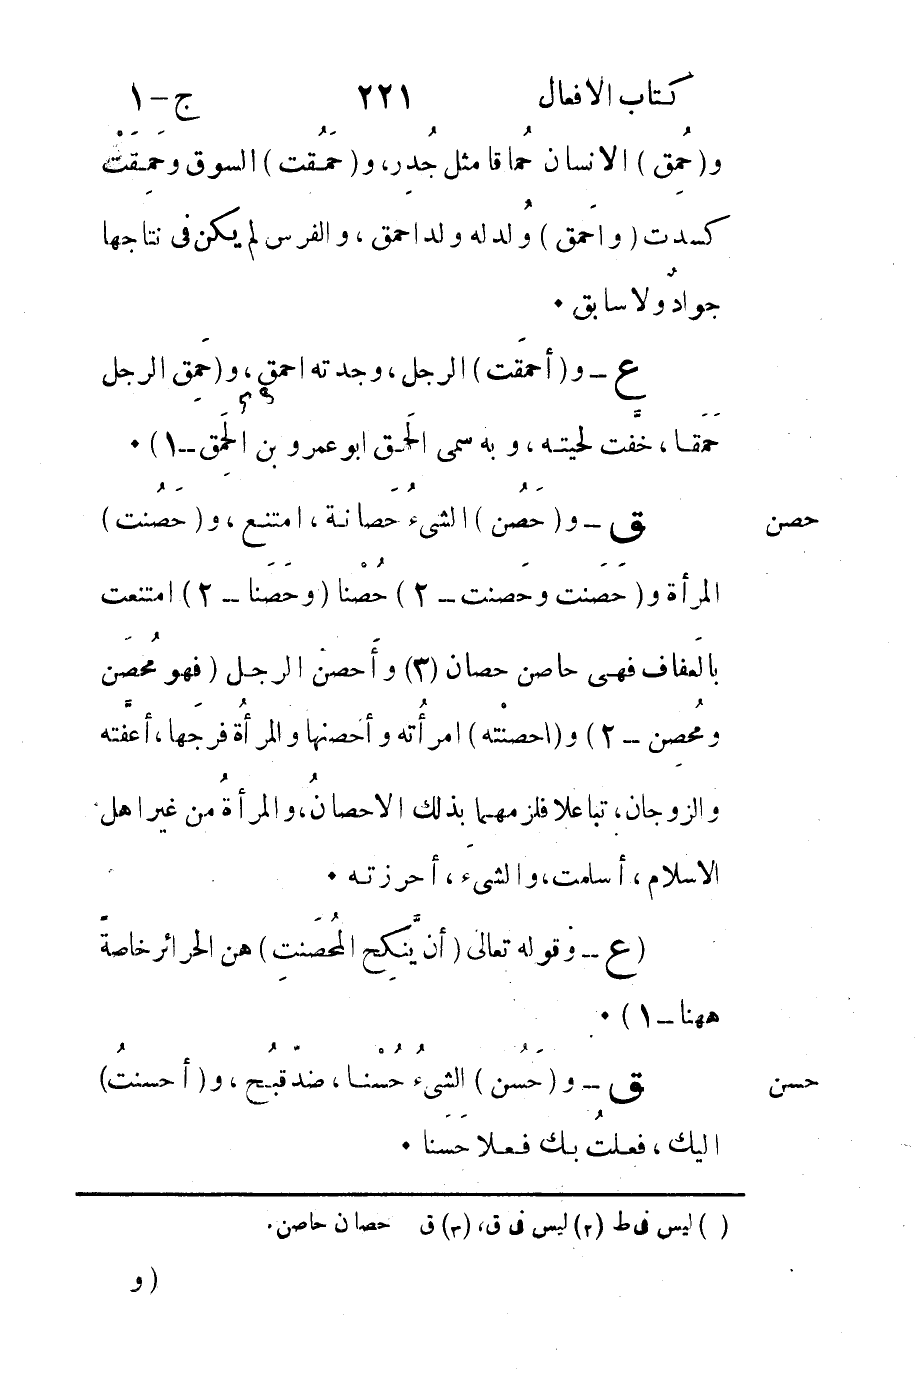 كتاب الافعال ٢٢١ ج-١
و(حُمِق) الانسان حُماقا مثل جُدِر، و(حَمُقت) السوق وحَمِقَتْ
كسدت (واَحمَق) وُلد له ولد احمق، والفرس لم يكن فى نتاجها
جوادٌ ولا سابق ٠
ع – و(أحمَقت) الرجل، وجدته احمق، و(حَمِق الرجل
حَمَقا، خفَّت لحيته، وبه سمى الحَمِق ابو عمرو بن الحَمِق-١) ٠
حصن ق – و(حَصُن) الشىءُ حَصانة، امتنع، و(حَصُنت)
المرأة و(حَصَنت وحَصِنت – ٢) حُصْنا (وحَصَنا – ٢) امتنعت
بالعَفاف فهى حاصن حصان (٣) وأَحصن الرجل (فهو مُحصَن
ومُحصِن – ٢) و(احصنْته) امرأُته وأحصَنها والمرأةُ فرجَها، أعفّته
والزوجان، تباعلا فلزمهما بذلك الاحصانُ، والمرأةُ من غير اهل
الاسلام، أسلمت، والشىء، أحرزته ٠
(ع – وقوله تعالى (أن يَّنكِح المُحصَنت) هن الحرائر خاصةً
ههنا – ١) ٠
حسن ق – و(حَسُن) الشىءُ حُسْنا، ضدّ قبُح، و(أحسنتُ)
اليك، فعلتُ بك فعلا حَسَنا ٠
( ) ليس فى ط (٢) ليس فى ق، (٣) ق حصان حاصن.
(و